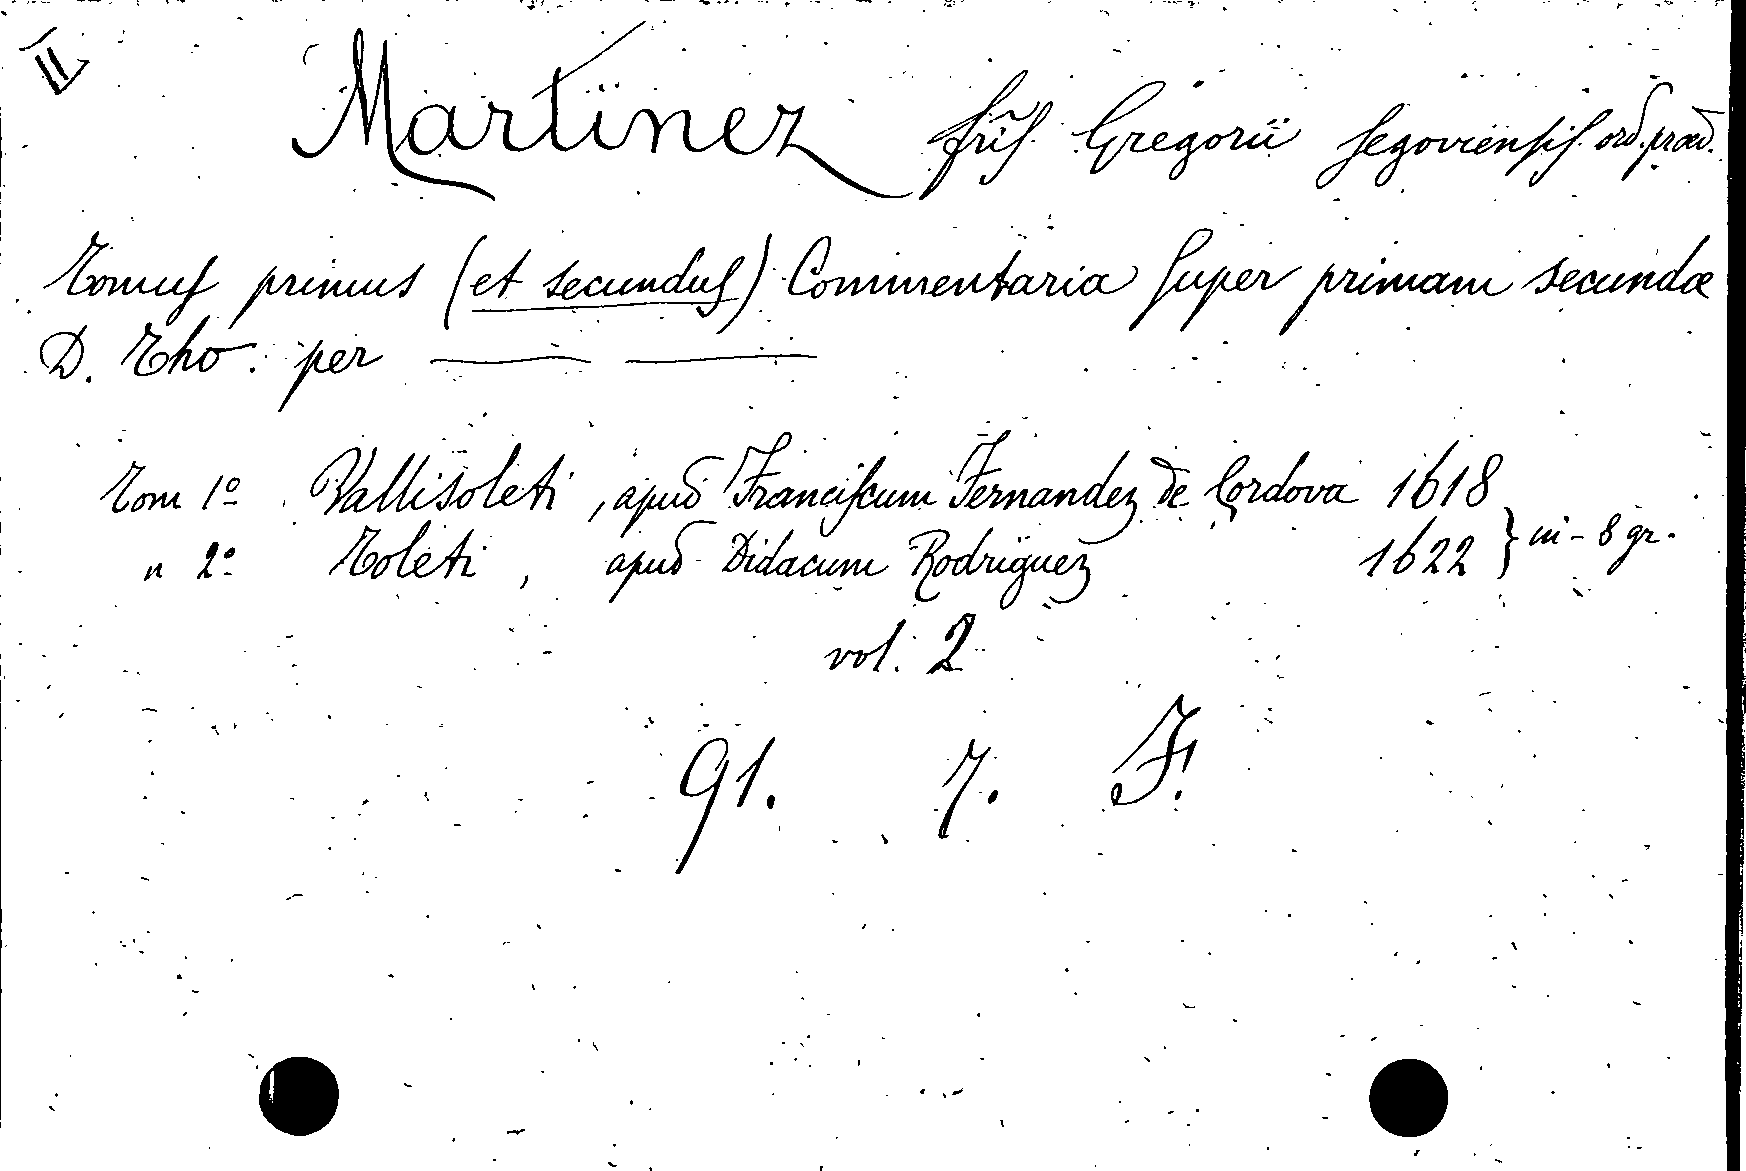 II
Martinez frĩs. Gregorii segoviensis ord. præd.
Tomus primus (et secundus) Commentaria super primam secundæ
D. Tho. per —— ——
Tom 1º Vallisoleti, apud Franciscum Fernandez de Cordova 1618
" 2º Toleti, apud Didacum Rodriguez 1622 } in-8 gr.
vol. 2
91. 7. F.